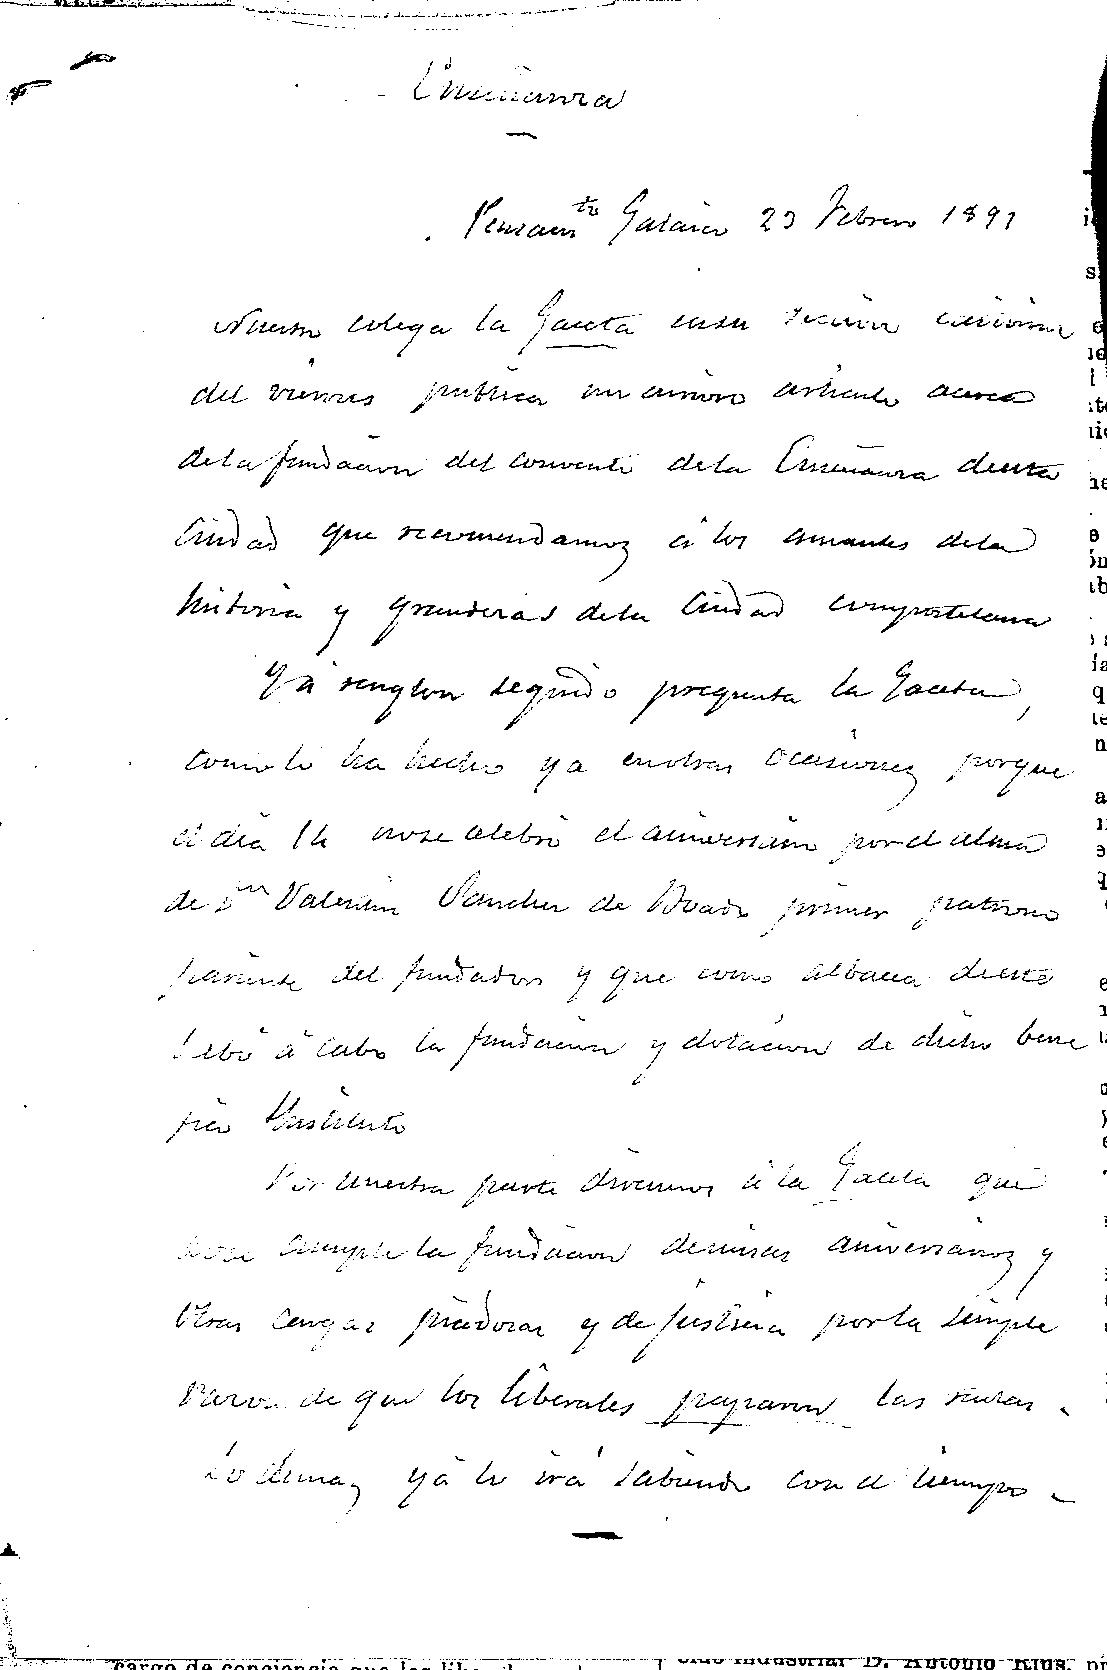 Enseñanza
Pensamto Galaico 23 Febrero 1891
Nuestro colega la Gaceta en su sección
del viernes publica un articulo acerca
de la fundacion del convento de la Enseñanza de esta
Ciudad que recomendamos á los amantes de la
historia y grandezas de la Ciudad compostelana
Y á renglon seguido pregunta la Gaceta,
como lo ha hecho ya en otras ocasiones porque
el dia 14 no se celebró el aniversario por el alma
de Dn Valentin Sanchez de Boado primer patrono
pariente del fundador y que como albacea de este
llebó á cabo la fundacion y dotacion de dicho bene
fico Instituto
Por nuestra parte diremos á la Gaceta que
no se cumple la fundacion de misas aniversarios y
otras cargas piadosas y de justicia por la simple
razon de que los liberales paparon las rentas.
Lo demas ya lo irá sabiendo con el tiempo.
cargo de conciencia que los
Industrial D. Antonio Rius,